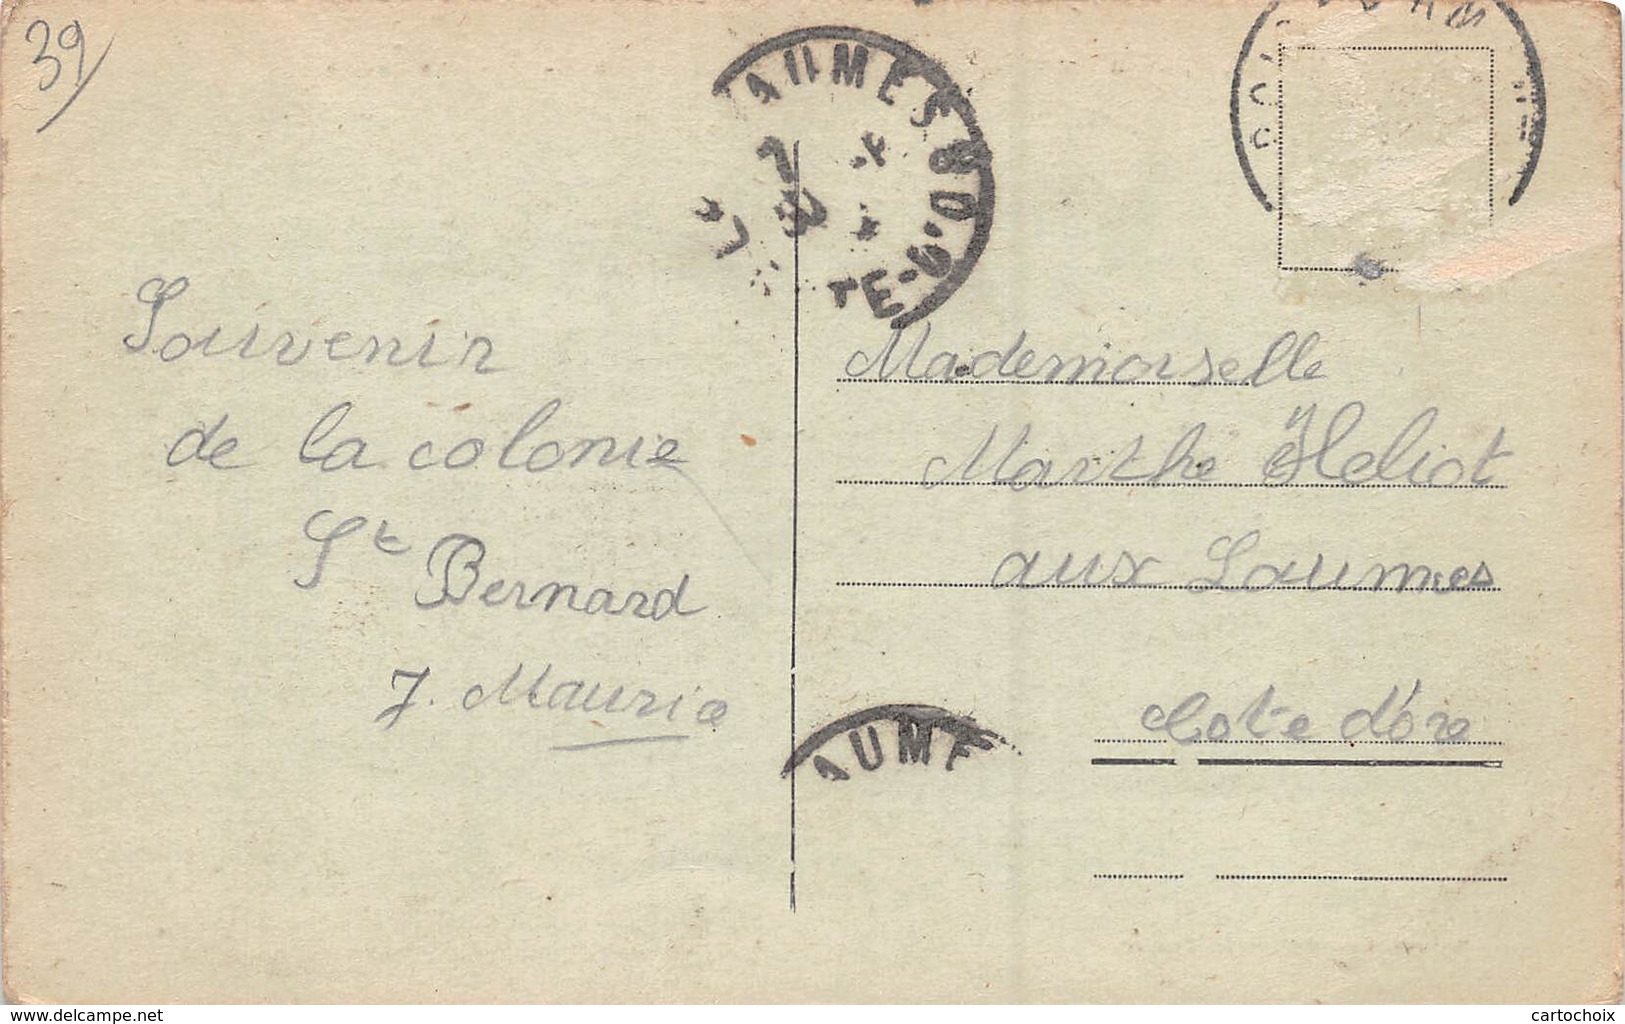 39
AUMES
TE-D'O
Souvenir
de la colonie
St Bernard
J. Mauria
Mademoiselle
Marthe Heliot
aux Laumes
Cote d'ore
AUME
www.delcampe.net
cartochoix